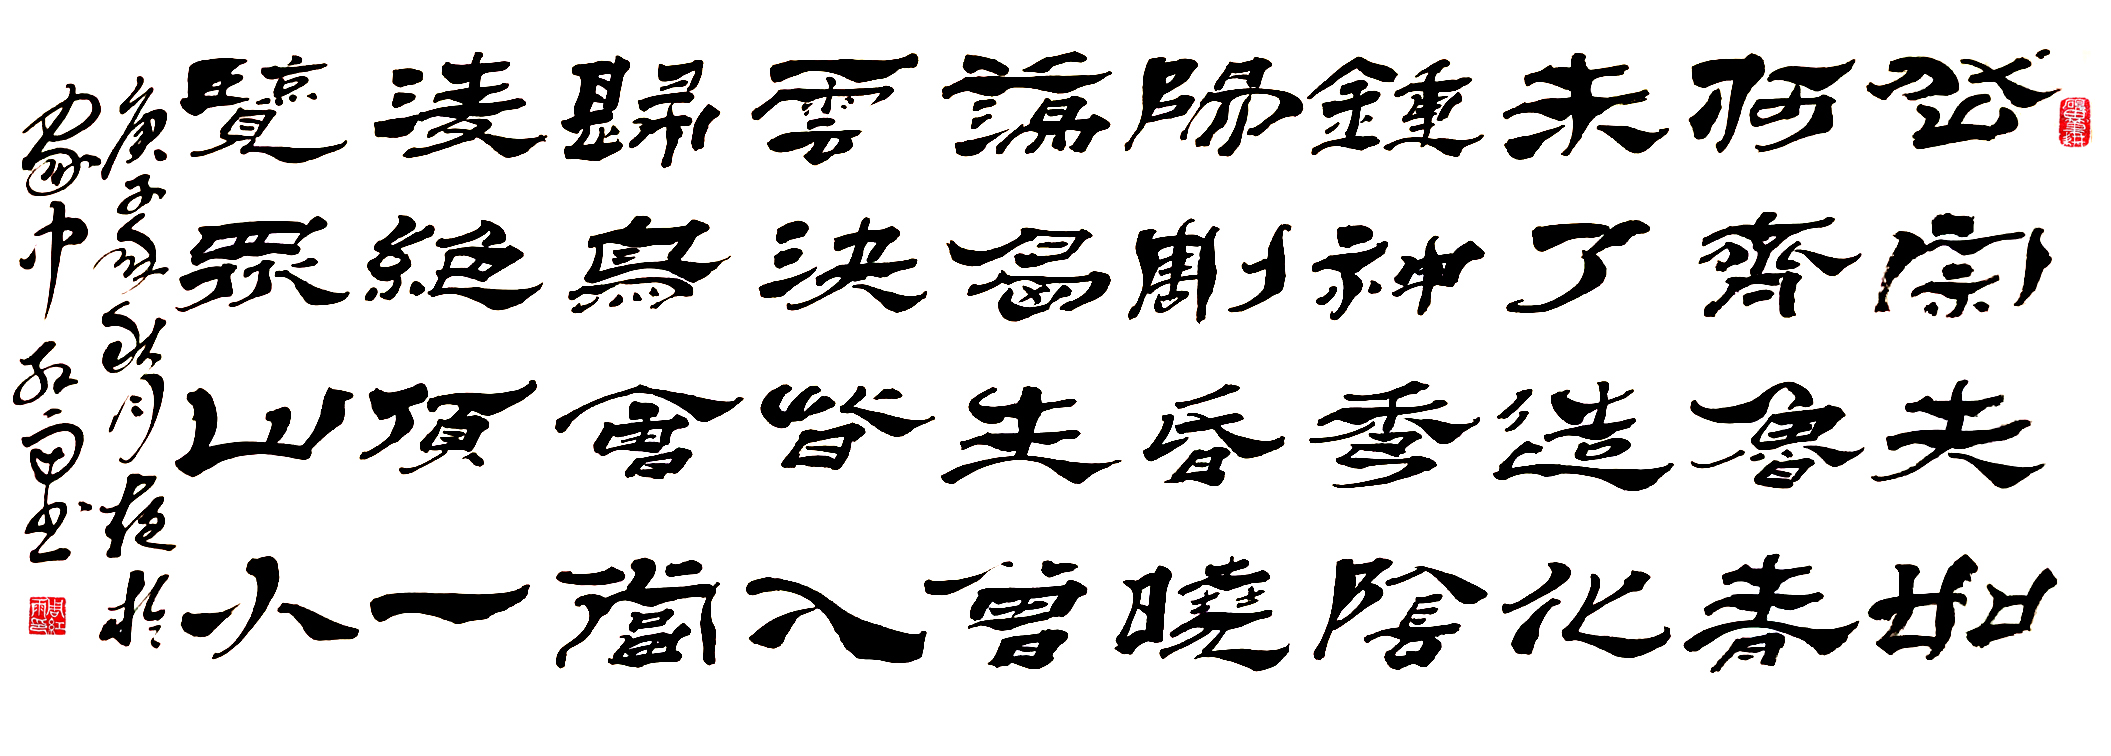 岱宗夫如
何齊魯青
未了造化
鍾神秀陰
陽割昏曉
蕩胸生曾
雲決眥入
歸鳥會當
淩絕頂一
覽眾山小
庚子秋月於
家中紅雨書